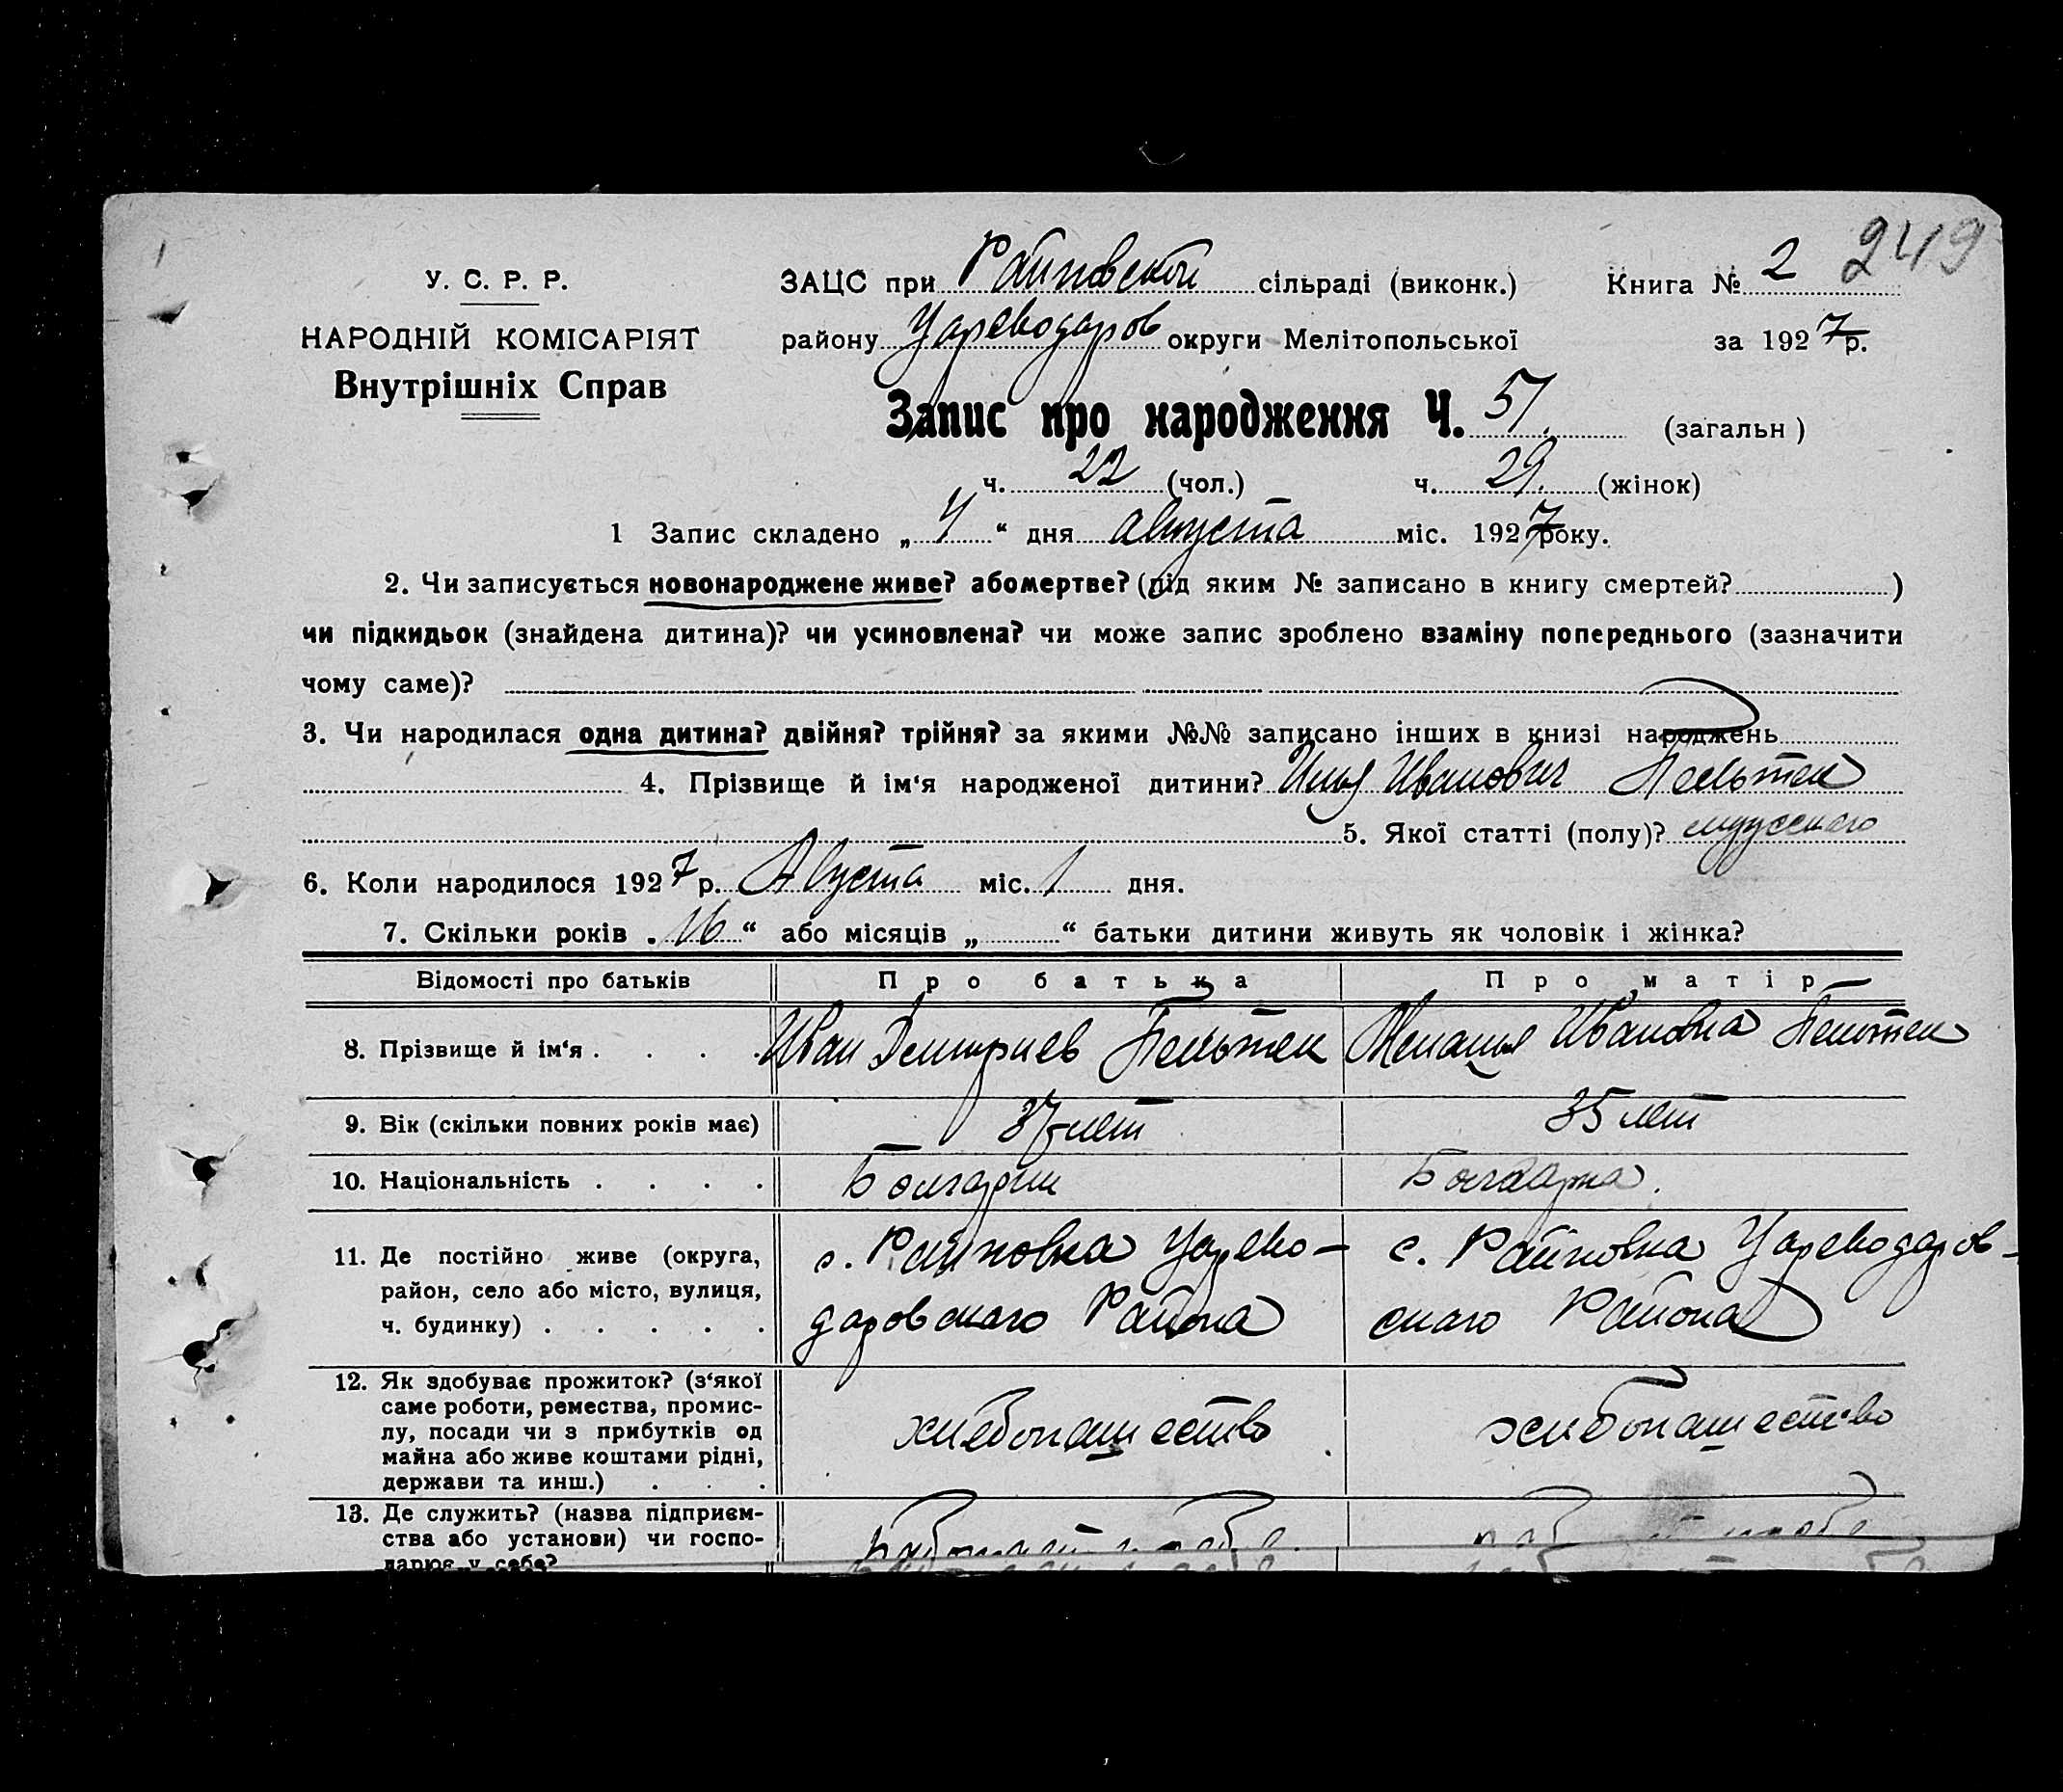 249
У. С. Р. Р.
НАРОДНІЙ КОМІСАРІЯТ
Внутрішніх Справ
ЗАЦС при Райновской сільраді (виконк.)
району Цареводаров округи Мелітопольської
Книга № 2
за 1927 р.
Запис про народження Ч. 51. (загальн )
ч. 22 (чол.) ч. 29. (жінок)
1 Запис складено „ 4 “ дня августа міс. 1927 року.
2. Чи записується новонароджене живе? або мертве? (під яким № записано в книгу смертей? )
чи підкидьок (знайдена дитина)? чи усиновлена? чи може запис зроблено взаміну попереднього (зазначити
чому саме)?
3. Чи народилася одна дитина? двійня? трійня? за якими №№ записано інших в книзі народжень
4. Прізвище й ім‘я народженої дитини? Илья Иванович Пельтек
5. Якої статті (полу)? мужского
6. Коли народилося 1927 р. Августа міс. 1 дня.
7. Скільки років „ 16 “ або місяців „ “ батьки дитини живуть як чоловік і жінка?
Відомості про батьків Про батька Про матір
8. Прізвище й ім‘я . . . . Иван Дмитриев Пельтек Меланья Ивановна Пельтек
9. Вік (скільки повних років має) 37 лет 35 лет
10. Національність . . . . Болгарин Болгарка.
11. Де постійно живе (округа, с. Райновка Царево- с. Райновка Цареводаров-
район, село або місто, вулиця,
ч. будинку) . . . . . даровского Района ского Района
12. Як здобуває прожиток? (з‘якої
саме роботи, ремества, промис-
лу, посади чи з прибутків од хлебопашество хлебопашество
майна або живе коштами рідні,
держави та инш.) . . .
13. Де служить? (назва підприєм-
ства або установи) чи госпо-
дарює у себе?